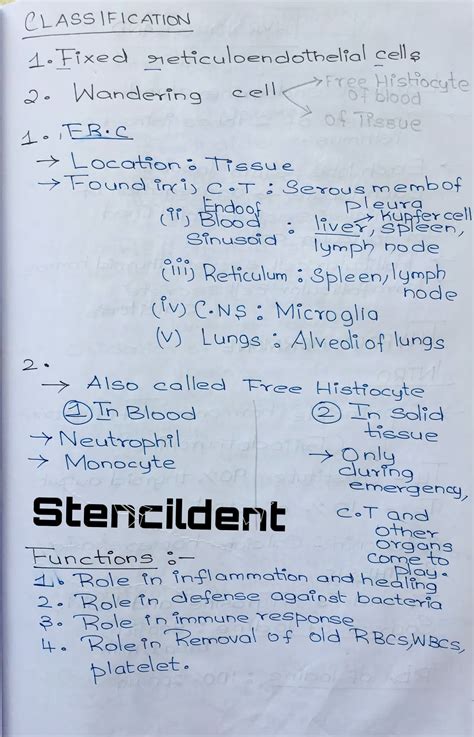 CLASSIFICATION
1. Fixed reticuloendothelial cells
2. Wandering cell → Free Histiocyte of blood
→ of Tissue
1. F.R.C
→ Location : Tissue
→ Found in : i) C.T : Serous memb of pleura
(ii) Endo of Blood Sinusoid : liver, → Kupfer cell spleen, lymph node
(iii) Reticulum : Spleen, lymph node
(iv) C.N.S : Microglia
(v) Lungs : Alveoli of lungs
2.
→ Also called Free Histiocyte
① In Blood
→ Neutrophil
→ Monocyte
② In Solid tissue
→ Only during emergency, C.T and other organs come to Play.
Stencildent
Functions :-
1. Role in inflammation and healing
2. Role in defense against bacteria
3. Role in immune response
4. Role in Removal of old RBCS, WBCS,
platelet.